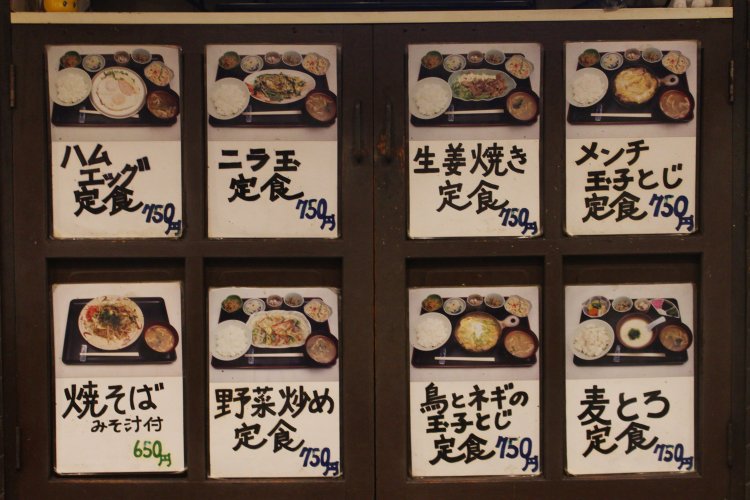 ハム
エッグ
定食 750円
ニラ玉
定食
750円
生姜焼き
定食
750円
メンチ
玉子とじ
定食 750円
焼そば
みそ汁付
650円
野菜炒め
定食
750円
鳥とネギの
玉子とじ
定食 750円
麦とろ
定食
750円